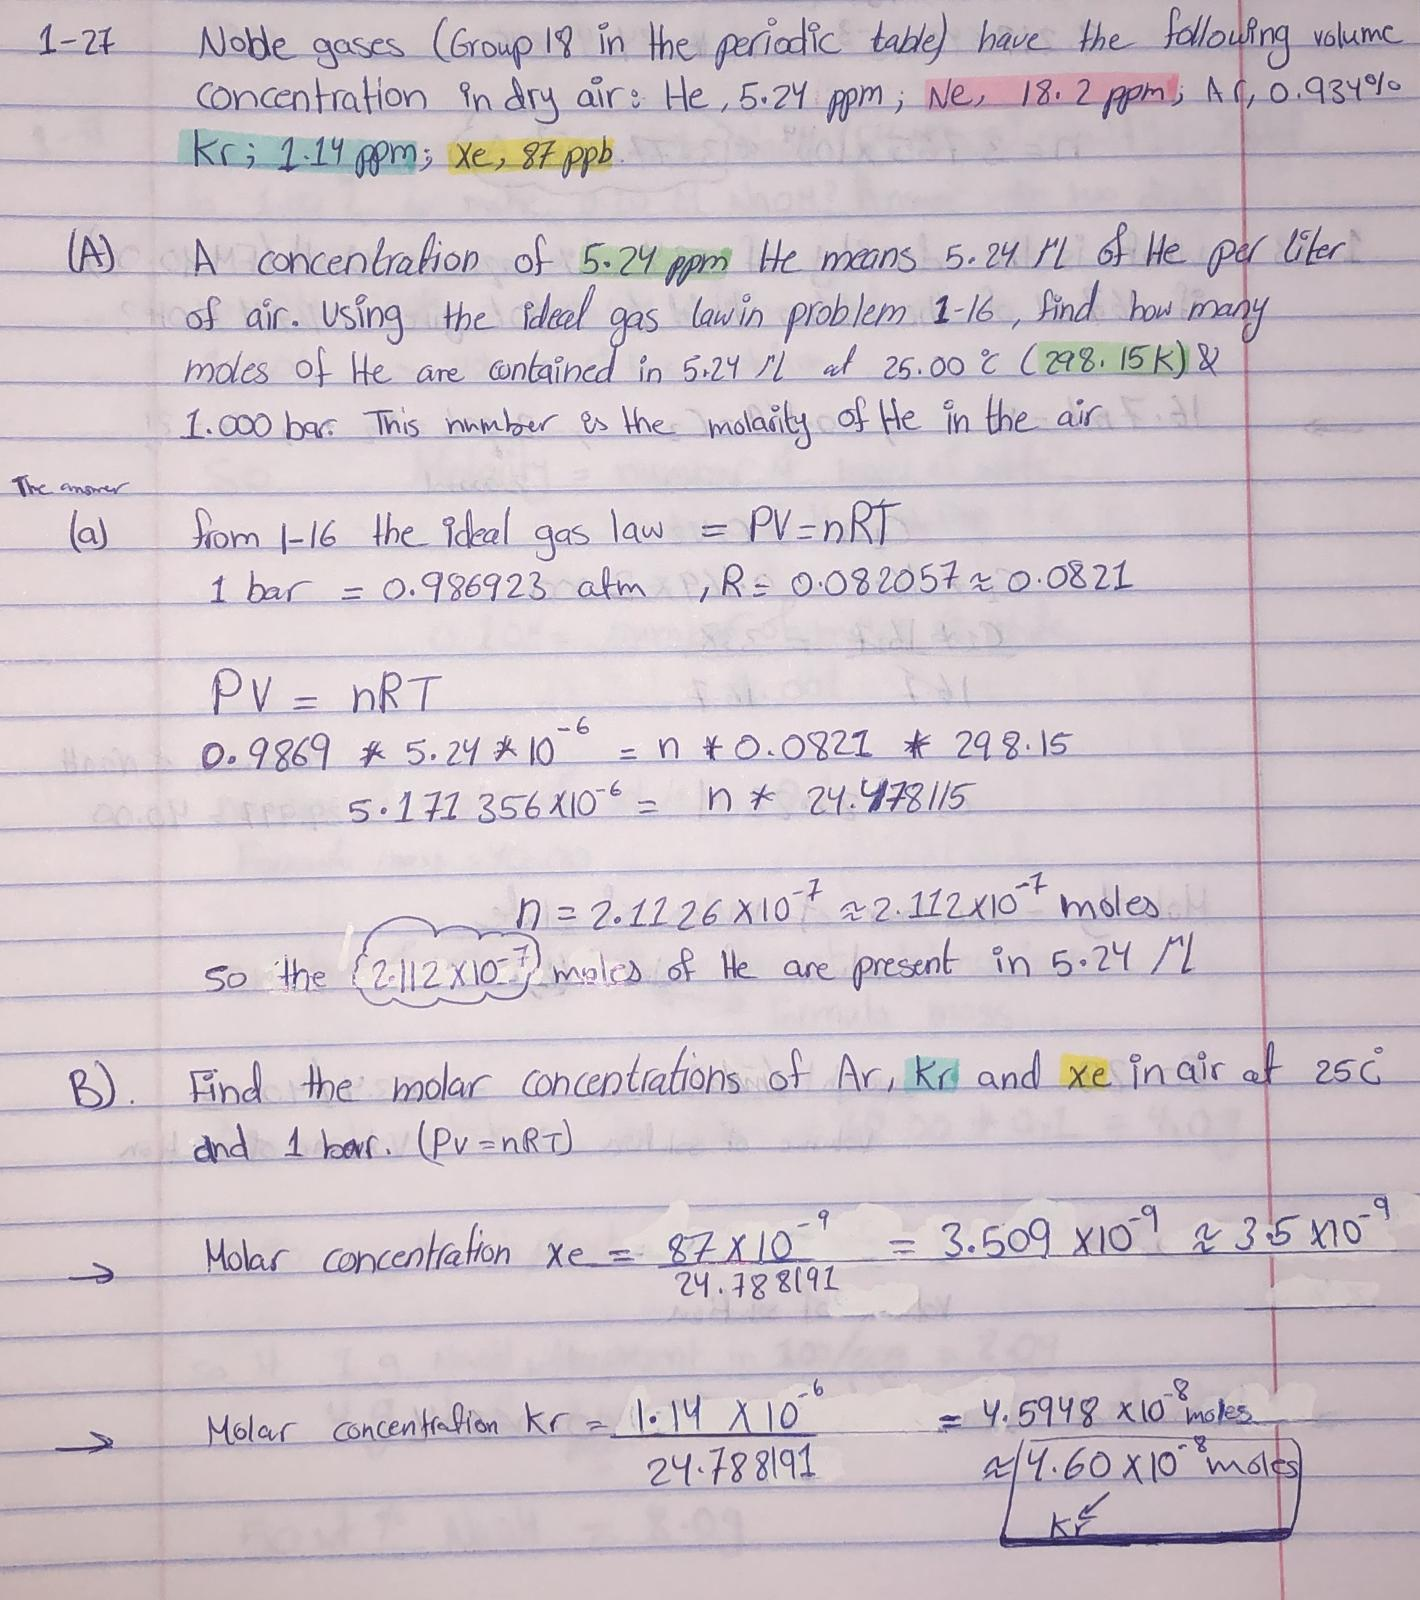 1-27 Noble gases (Group 18 in the periodic table) have the following volume
concentration in dry air: He, 5.24 ppm; Ne, 18.2 ppm; Ar, 0.934%
Kr; 1.14 ppm; Xe, 87 ppb.
(A) A concentration of 5.24 ppm He means 5.24 μL of He per liter
of air. Using the ideal gas law in problem 1-16, find how many
moles of He are contained in 5.24 μL at 25.00 °c (298.15K) &
1.000 bar. This number is the molarity of He in the air
The answer
(a) from 1-16 the ideal gas law = PV=nRT
1 bar = 0.986923 atm , R= 0.082057 ≈ 0.0821
PV = nRT
0.9869 * 5.24 * 10⁻⁶ = n * 0.0821 * 298.15
5.171356x10⁻⁶ = n * 24.478115
n = 2.1126 x10⁻⁷ ≈ 2.112x10⁻⁷ moles
so the (2.112x10⁻⁷) moles of He are present in 5.24 μL
B). Find the molar concentrations of Ar, Kr and Xe in air at 25°C
and 1 bar. (PV=nRT)
→ Molar concentration Xe = 87 x 10⁻⁹ = 3.509 x10⁻⁹ ≈ 3.5 x10⁻⁹
24.788191
→ Molar concentration Kr = 1.14 x 10⁻⁶ = 4.5948 x10⁻⁸ moles
24.788191 ≈ 4.60 x10⁻⁸ moles
Kr